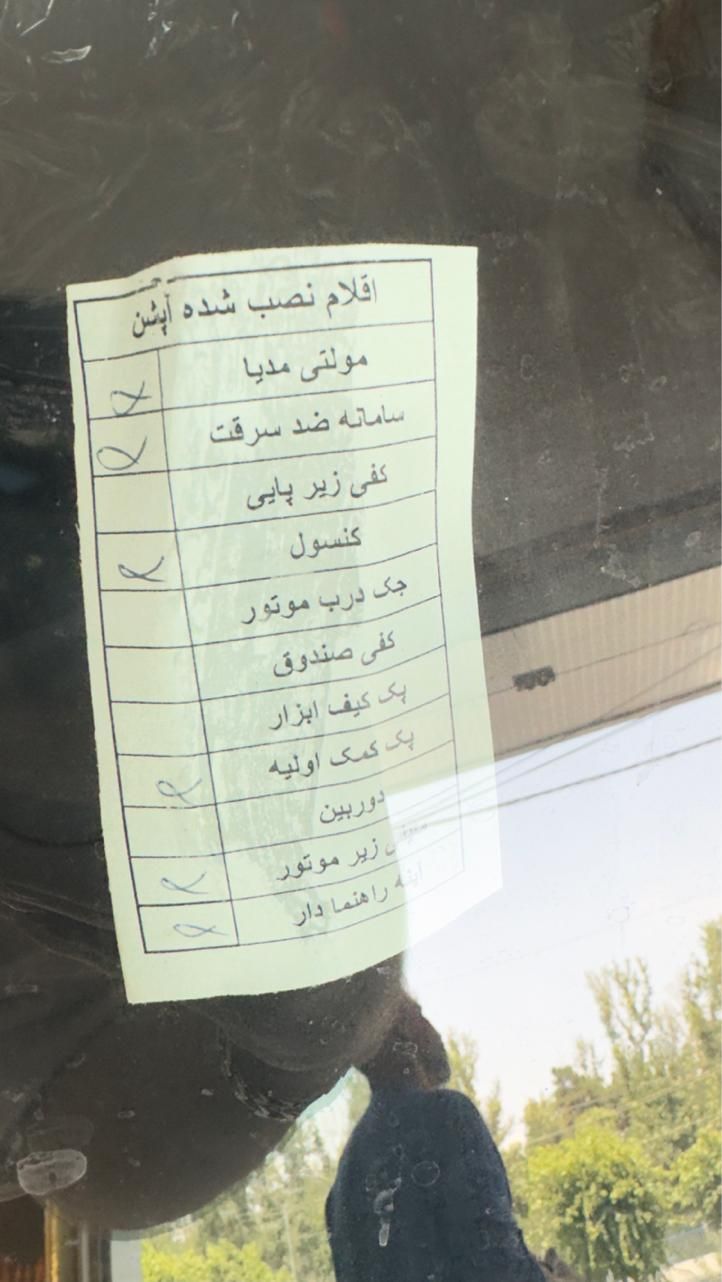 اقلام نصب شده آپشن
مولتی مدیا
سامانه ضد سرقت
کفی زیر پایی
کنسول
جک درب موتور
کفی صندوق
پک کیف ابزار
پک کمک اولیه
دوربین
سینی زیر موتور
آینه راهنما دار